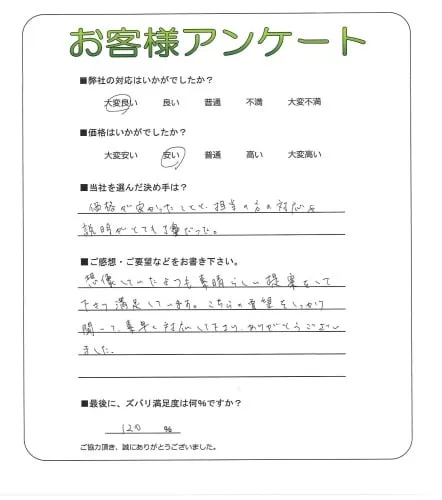 お客様アンケート
■弊社の対応はいかがでしたか？
大変良い 良い 普通 不満 大変不満
■価格はいかがでしたか？
大変安い 安い 普通 高い 大変高い
■当社を選んだ決め手は？
価格が安かったことと、担当の方の対応や
説明がとても丁寧だった。
■ご感想・ご要望などをお書き下さい。
想像していたよりも素晴らしい提案をして
下さり満足しています。こちらの要望をしっかり
聞いて、素早く対応して下さり、ありがとうござい
ました。
■最後に、ズバリ満足度は何％ですか？
120 %
ご協力頂き、誠にありがとうございました。